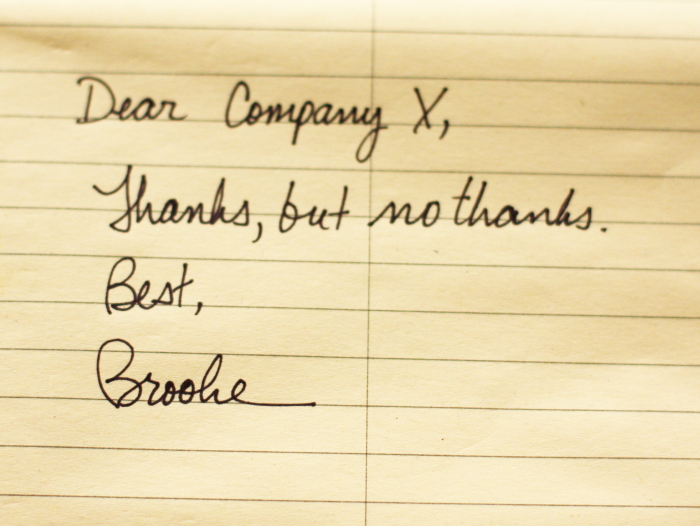 Dear Company X,
Thanks, but no thanks.
Best,
Brooke